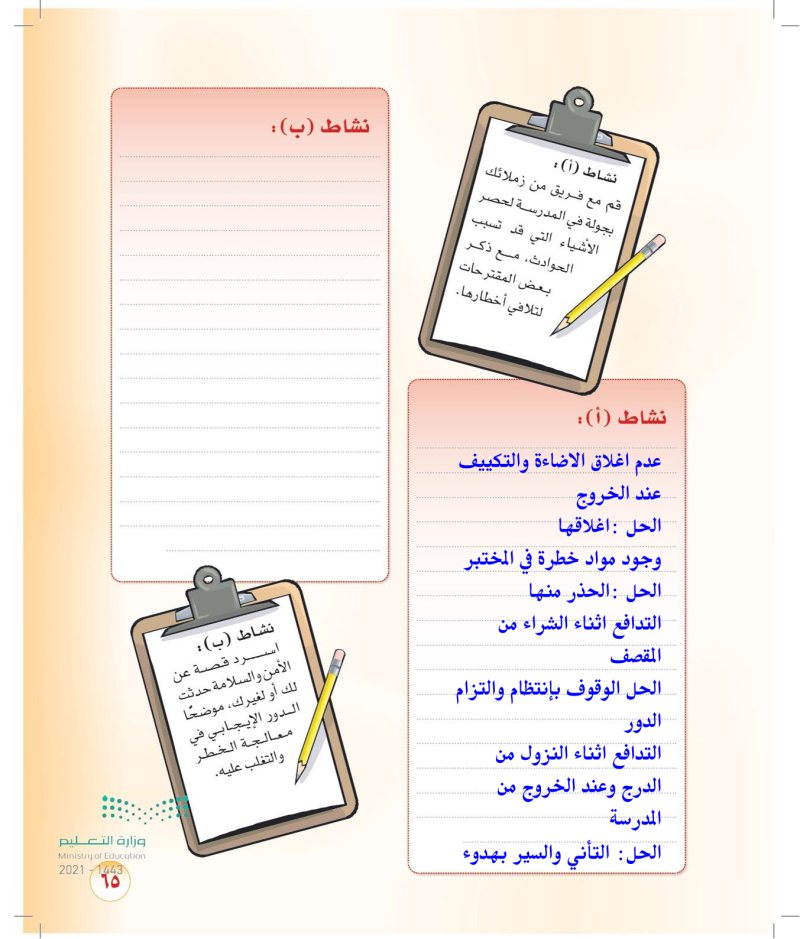 نشاط (أ):
قم مع فريق من زملائك
بجولة في المدرسة لحصر
الأشياء التي قد تسبب
الحوادث، مع ذكر
بعض المقترحات
لتلافي أخطارها.
نشاط (أ):
عدم اغلاق الاضاءة والتكييف
عند الخروج
الحل :اغلاقها
وجود مواد خطرة في المختبر
الحل :الحذر منها
التدافع اثناء الشراء من
المقصف
الحل الوقوف بإنتظام والتزام
الدور
التدافع اثناء النزول من
الدرج وعند الخروج من
المدرسة
الحل: التأني والسير بهدوء
نشاط (ب):
نشاط (ب):
اسرد قصة عن
الأمن والسلامة حدثت
لك أو لغيرك، موضحًا
الدور الإيجابي في
معالجة الخطر
والتغلب عليه.
وزارة التعليم
Ministry of Education
2021 - 1443
٦٥